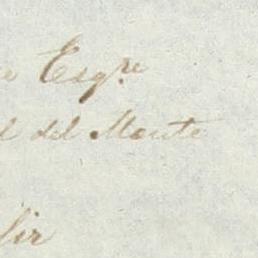 e Esqre
l del Monte
Sir